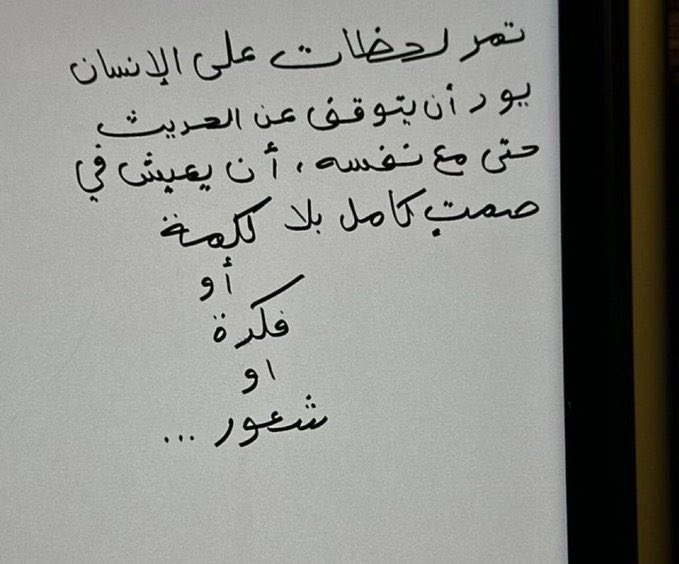 تمر لحظات على الإنسان
يود أن يتوقف عن الحديث
حتى مع نفسه، أن يعيش في
صمت كامل بلا كلمة
أو
فكرة
او
شعور ...